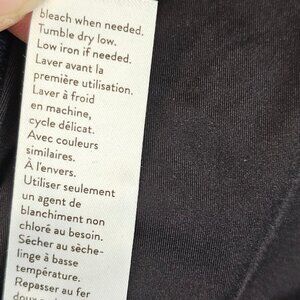 bleach when needed.
Tumble dry low.
Low iron if needed.
Laver avant la
première utilisation.
Laver à froid
en machine,
cycle délicat.
Avec couleurs
similaires.
À l'envers.
Utiliser seulement
un agent de
blanchiment non
chloré au besoin.
Sécher au sèche-
linge à basse
température.
Repasser au fer